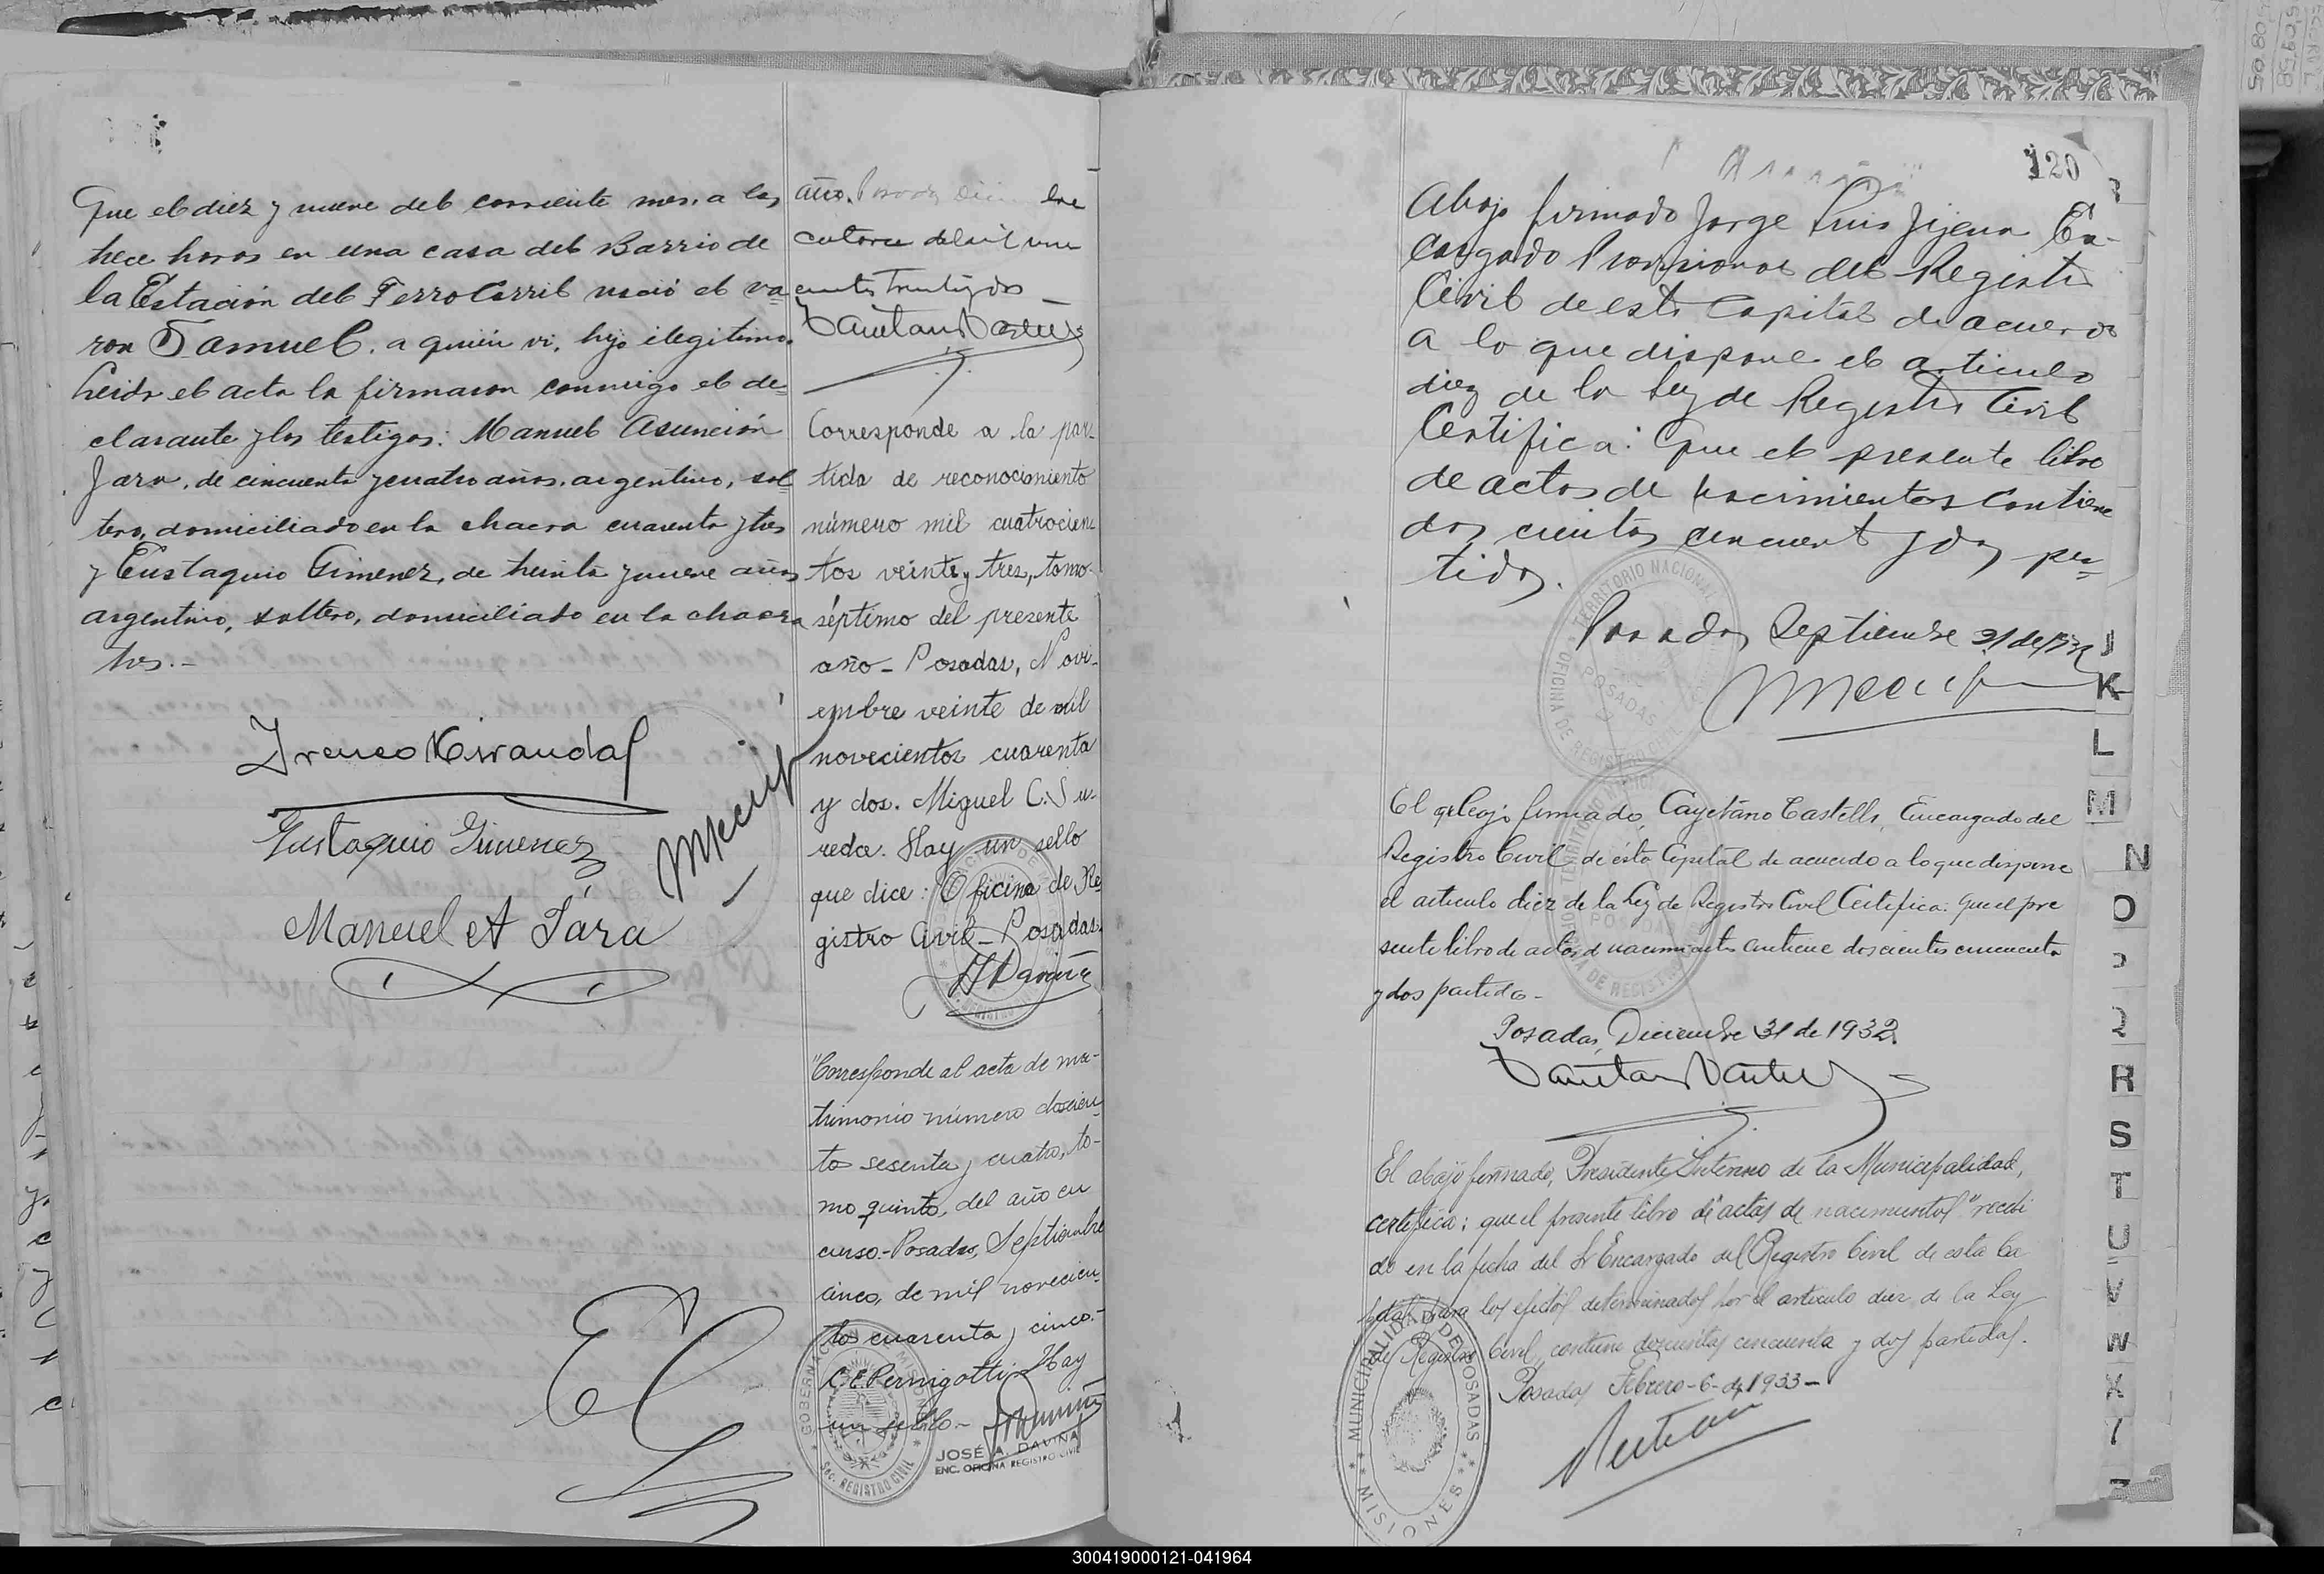 Que el diez y nueve del corriente mes, a las
trece horas en una casa del Barrio de
la Estación del Ferro Carril nació el va=
ron Samuel, a quien vi, hijo ilegitimo.
Leida el acta la firmaron conmigo el de=
clarante y los testigos: Manuel Asunción
Jara, de cincuenta y cuatro años, argentino, sol
tero, domiciliado en la chacra cuarenta y tres
y Eustaquio Gimenez, de treinta y nueve años
argentino, soltero, domiciliado en la chacra
tres.-
Ireneo Miranda
Eustaquio Gimenez
Manuel A Jára
año.
catorce
treinta y dos
Corresponde a la par-
tida de reconocimiento
número mil cuatrocien-
tos veinte y tres, tomo
séptimo del presente
año - Posadas, Novi-
embre veinte de mil
novecientos cuarenta
y dos. Miguel C. Su-
reda. Hay un sello
que dice: Oficina de Re
gistro Civil - Posadas.
"Corresponde al acta de ma-
trimonio número doscien-
tos sesenta y cuatro, to-
mo quinto, del año en
curso.- Posadas, Septiembre
cinco, de mil novecien-
tos cuarenta y cinco.-
C. E. Pernigotti - Hay
un sello -
GOBERNACION MISIONES
Sec. REGISTRO CIVIL
JOSÉ A. DAVIÑA
ENC. OFICINA REGISTRO CIVIL
120
Abajo firmado Jorge Luis Jijena En-
cargado Provisional del Registro
Civil de esta Capital de acuerdo
a lo que dispone el articulo
diez de la Ley de Registro Civil
Certifica: Que el presente libro
de actas de nacimientos contiene
dos cientos cincuent y dos par=
tidas.
Posadas Septiembre
TERRITORIO NACIONAL
OFICINA DE REGISTRO CIVIL
POSADAS
El abajo firmado, Cayetano Castells, Encargado del
Registro Civil de ésta Capital de acuerdo a lo que dispone
el articulo diez de la Ley de Registro Civil Certifica: que el pre
sente libro de actas d nacimientos contiene doscientos cincuenta
y dos partidas -
Posadas, Diciembre 31 de 1932.
El abajo firmado, Presidente Interino de la Municipalidad,
certifica; que el presente libro de "actas de nacimientos" recibi
do en la fecha del Sr Encargado del Registro Civil de esta Ca
pital para los efectos determinados por el articulo diez de la Ley
de Registro Civil, contiene doscientas cincuenta y dos partidas.
Posadas Febrero - 6 - de 1933 -
MUNICIPALIDAD DE POSADAS
MISIONES
J
K
L
M
N
O
R
S
T
U
V
W
X
300419000121-041964